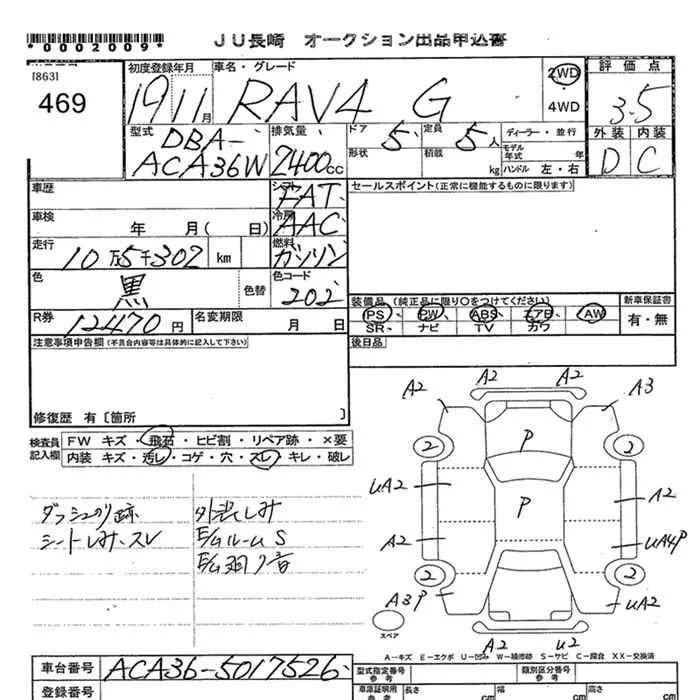 *0002009*
JU長崎 オークション出品申込書
[863]
469
初度登録年月
19年11月
車名・グレード
RAV4 G
2WD
4WD
評価点
3.5
外装 内装
D C
型式
DBA-
ACA36W
排気量
2400cc
ドア 5
形状
定員 5人
積載 kg
ディーラー・並行
モデル年式 年
ハンドル 左・右
車歴
シフト
FAT
セールスポイント(正常に機能するものに限ります)
車検 年 月( 日)
冷房
AAC
走行
10万5千302 km
燃料
ガソリン
色
黒
色替
色コード
202
装備品(純正品に限り○をつけてください)
PS PW ABS エアB AW
SR ナビ TV カワ
新車保証書
有・無
R券
12470円
名変期限 月 日
後日品
注意事項申告欄(不具合内容等は具体的に記入して下さい)
修復歴 有[箇所 ]
検査員
記入欄
FW キズ・飛石・ヒビ割・リペア跡・×要
内装 キズ・汚レ・コゲ・穴・スレ・キレ・破レ
ダッシュのり跡
シートしみ、スレ
外装しみ
E/Gルーム S
E/G廻り音
A2 A2 A2 A3
2 2
P
UA2
P
A2
A2
UA4P
2 2
A3P
UA2
スペア
A2 U2
A－キズ E－エクボ U－凹み W－補修跡 S－サビ C－腐食 XX－交換済
車台番号
ACA36-5017526
登録番号
型式指定番号
参考
類別区分番号
参考
車庫証明用
参考
長さ cm
幅 cm
高さ cm